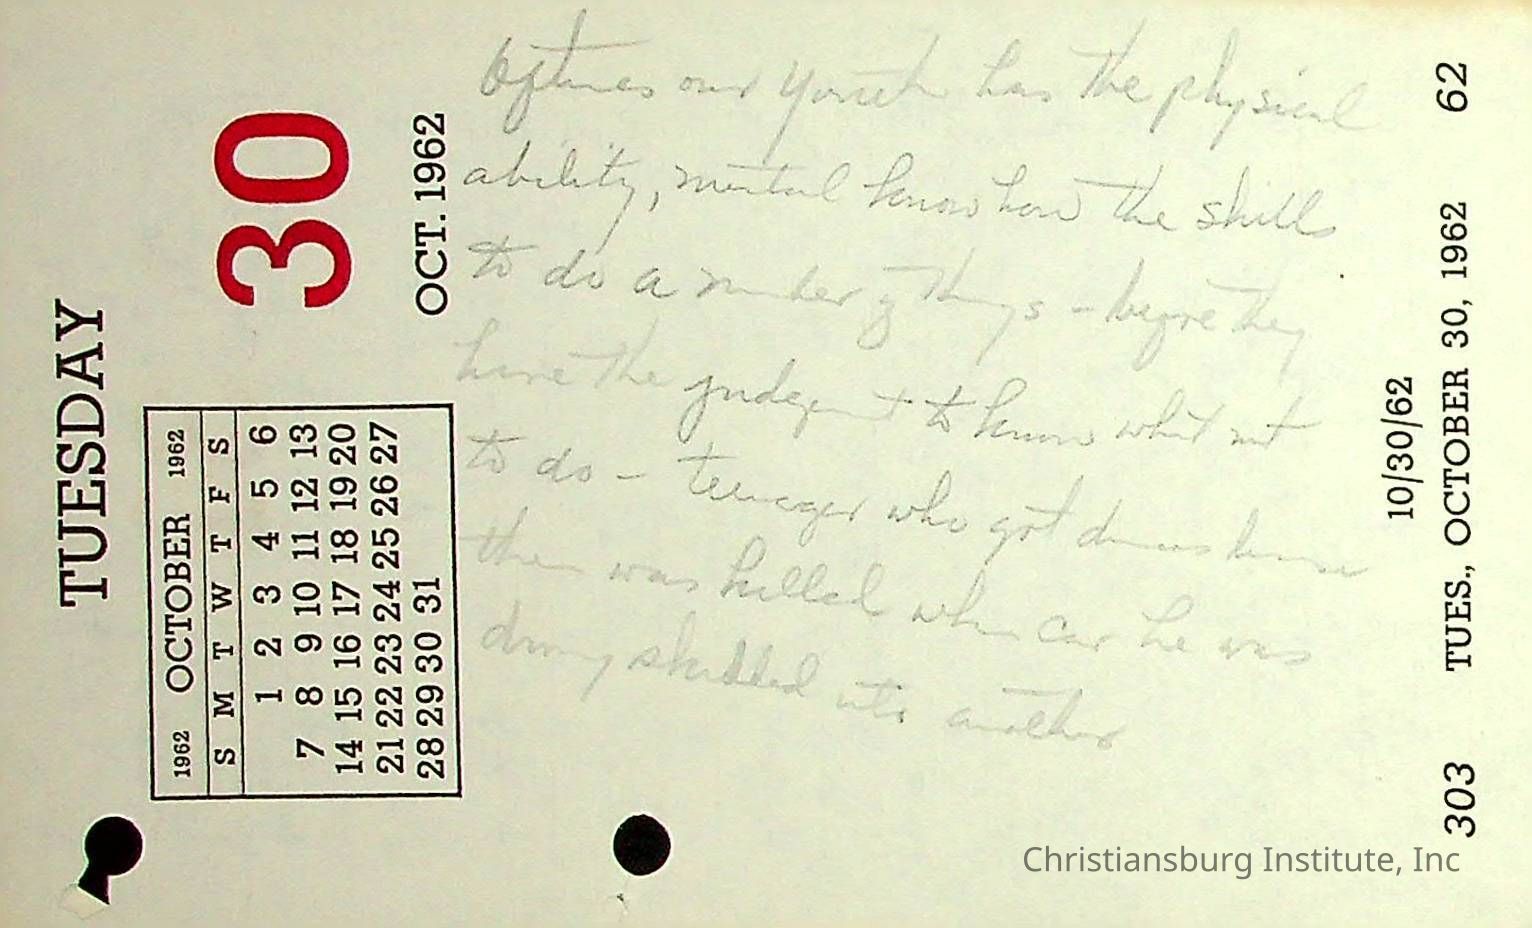 TUESDAY
30
OCT. 1962
1962 OCTOBER 1962
S M T W T F S
1 2 3 4 5 6
7 8 9 10 11 12 13
14 15 16 17 18 19 20
21 22 23 24 25 26 27
28 29 30 31
Oftimes our youth has the physical
ability, mental know how the skills
to do a number of things - before they
have the judgment to know what not
to do - teenager who got drivers license
then was killed when car he was
driving skidded into another
10/30/62
303 TUES., OCTOBER 30, 1962 62
Christiansburg Institute, Inc